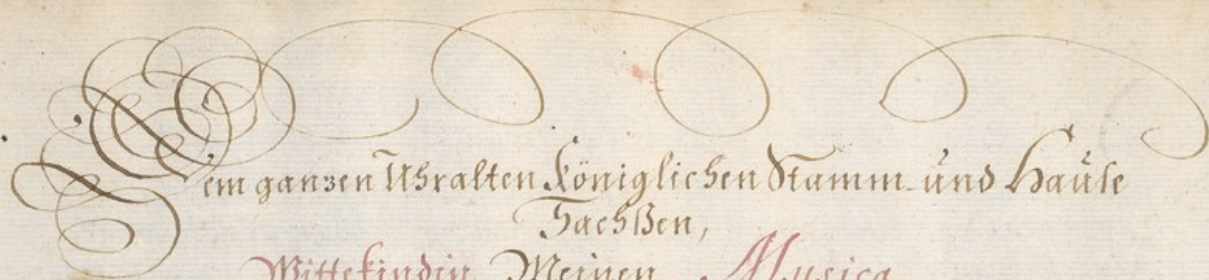 Dem ganzen Uhralten Königlichen Stamm und Hauße
Sachßen,
Wittekindin Meinen Musica